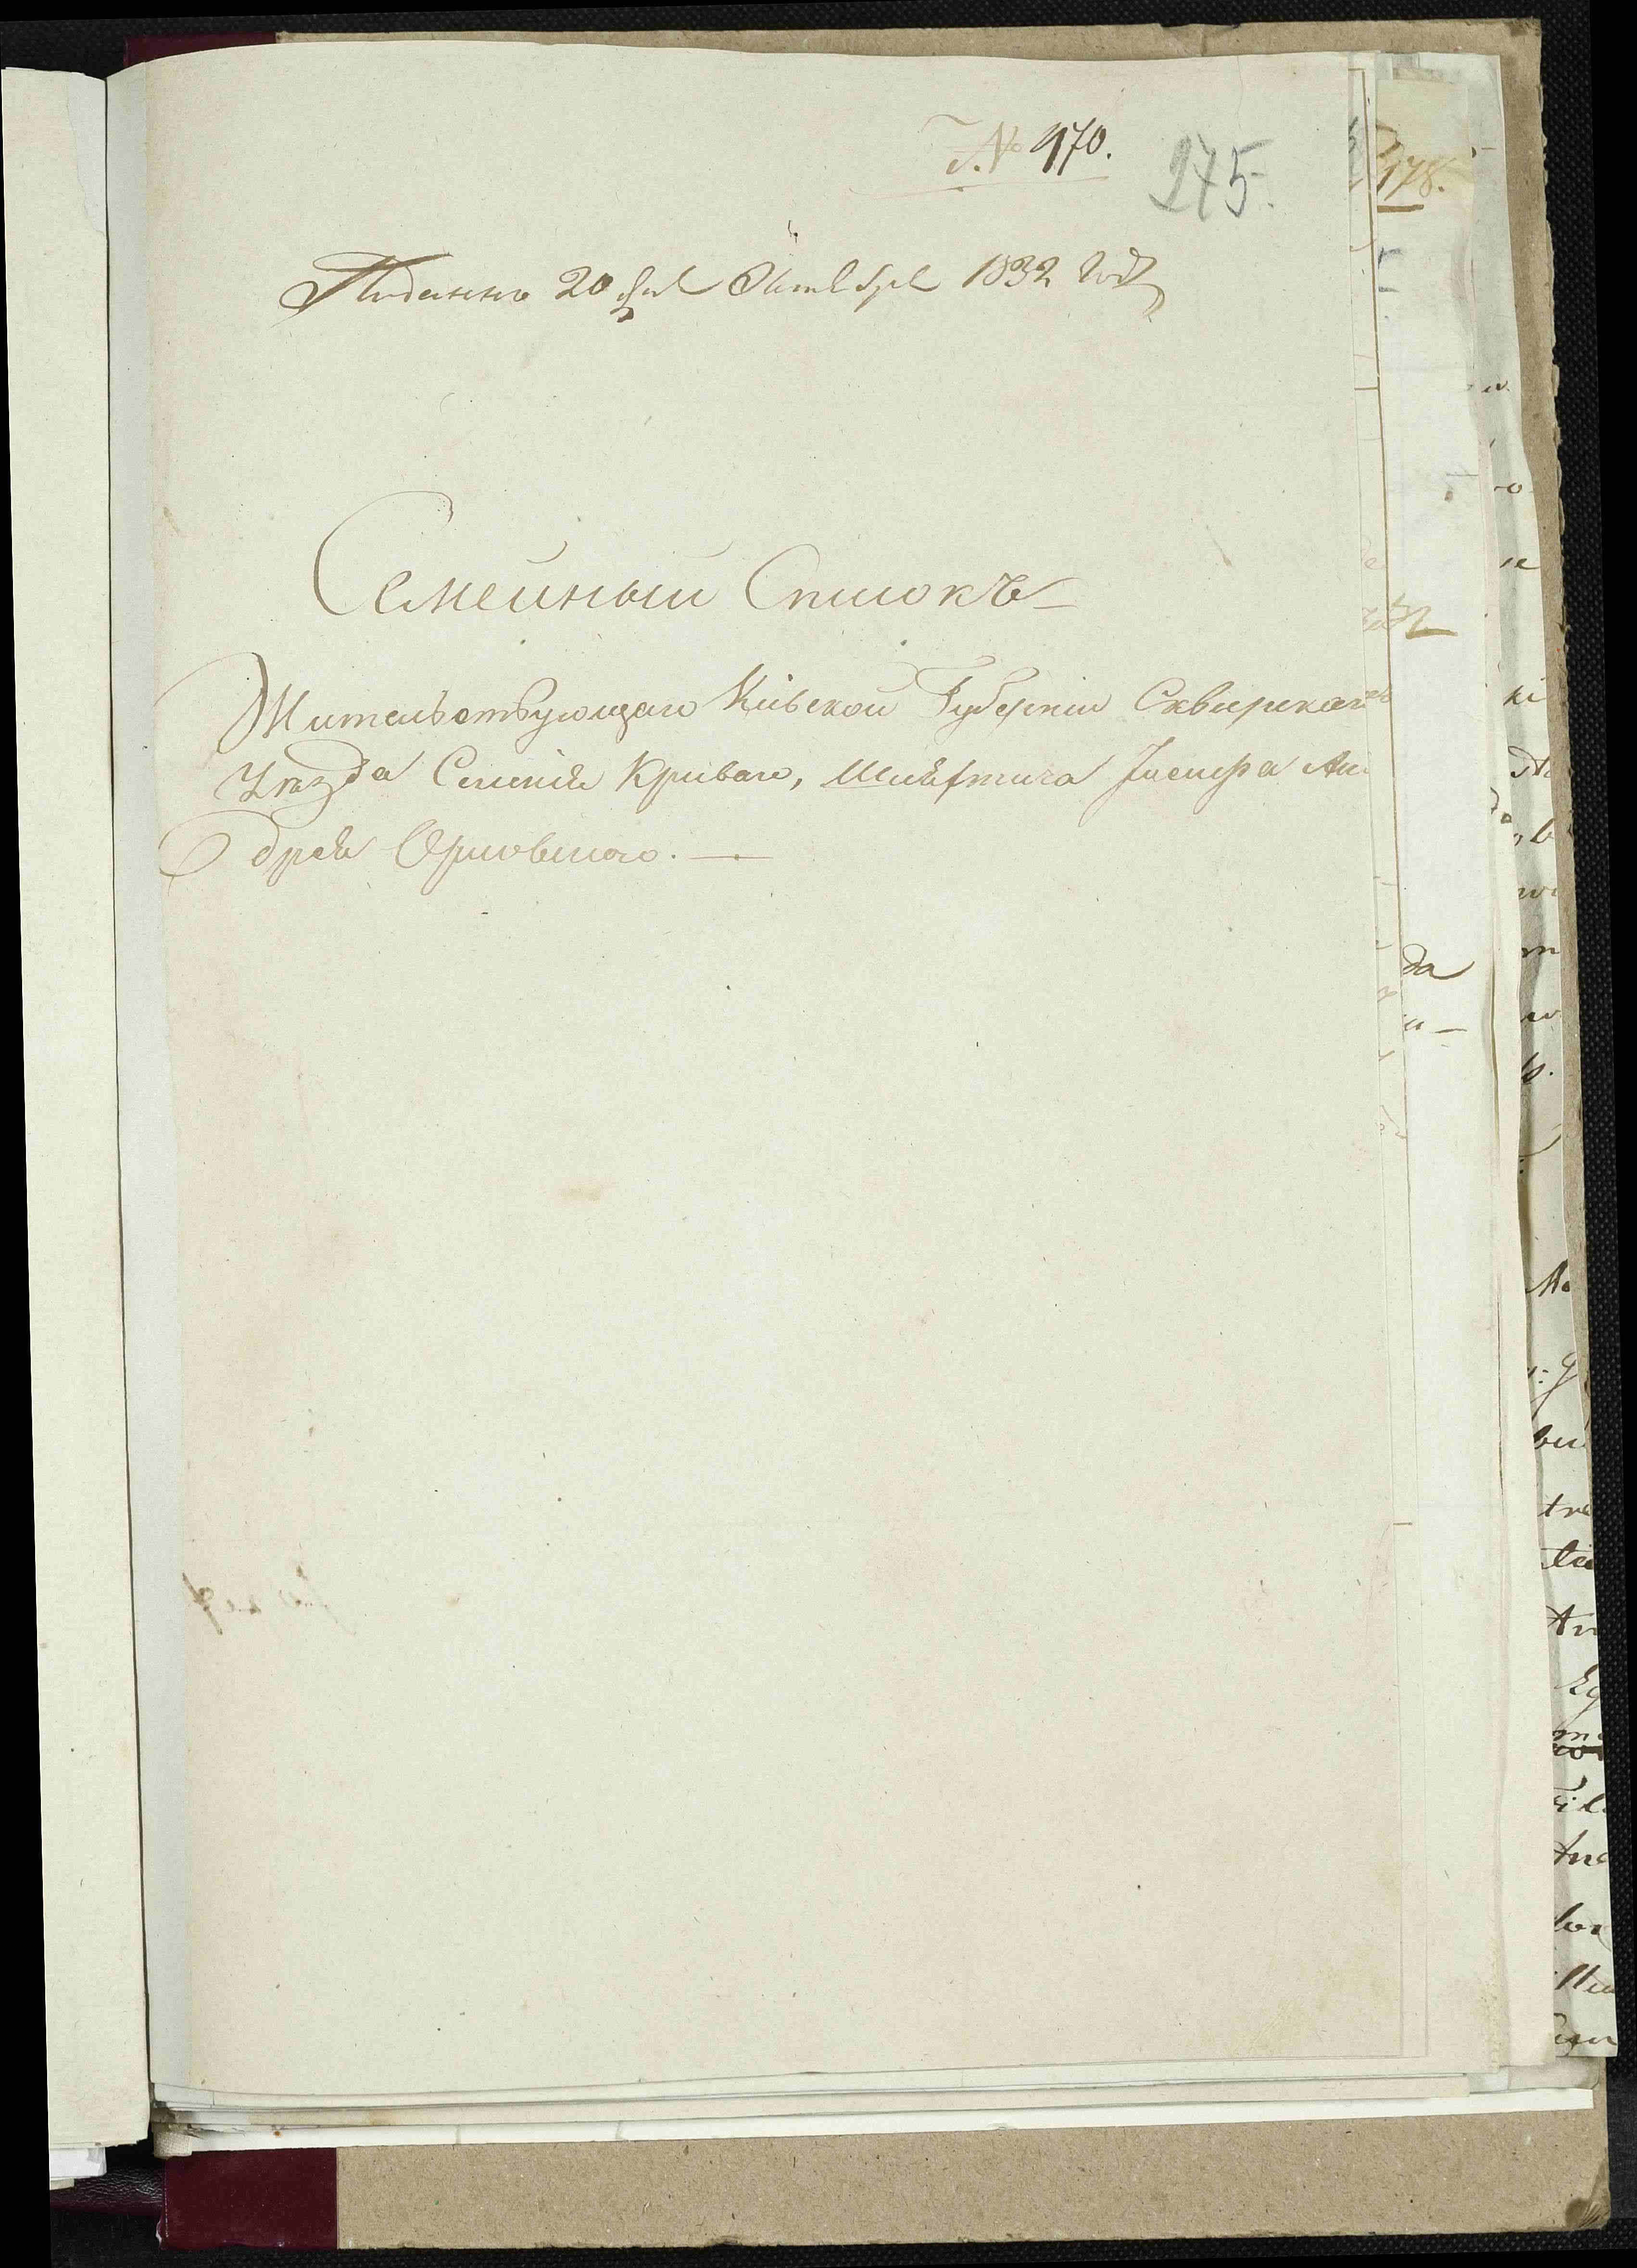 № 970.
275.
Подано 20 дня Октября 1832 года
Семейный Списокъ
Жительствующаго Кіевской Губерніи Сквирскаго
Уѣзда Селенія Криваго, Шляхтича Іосифа Ан
дрея Орловского.